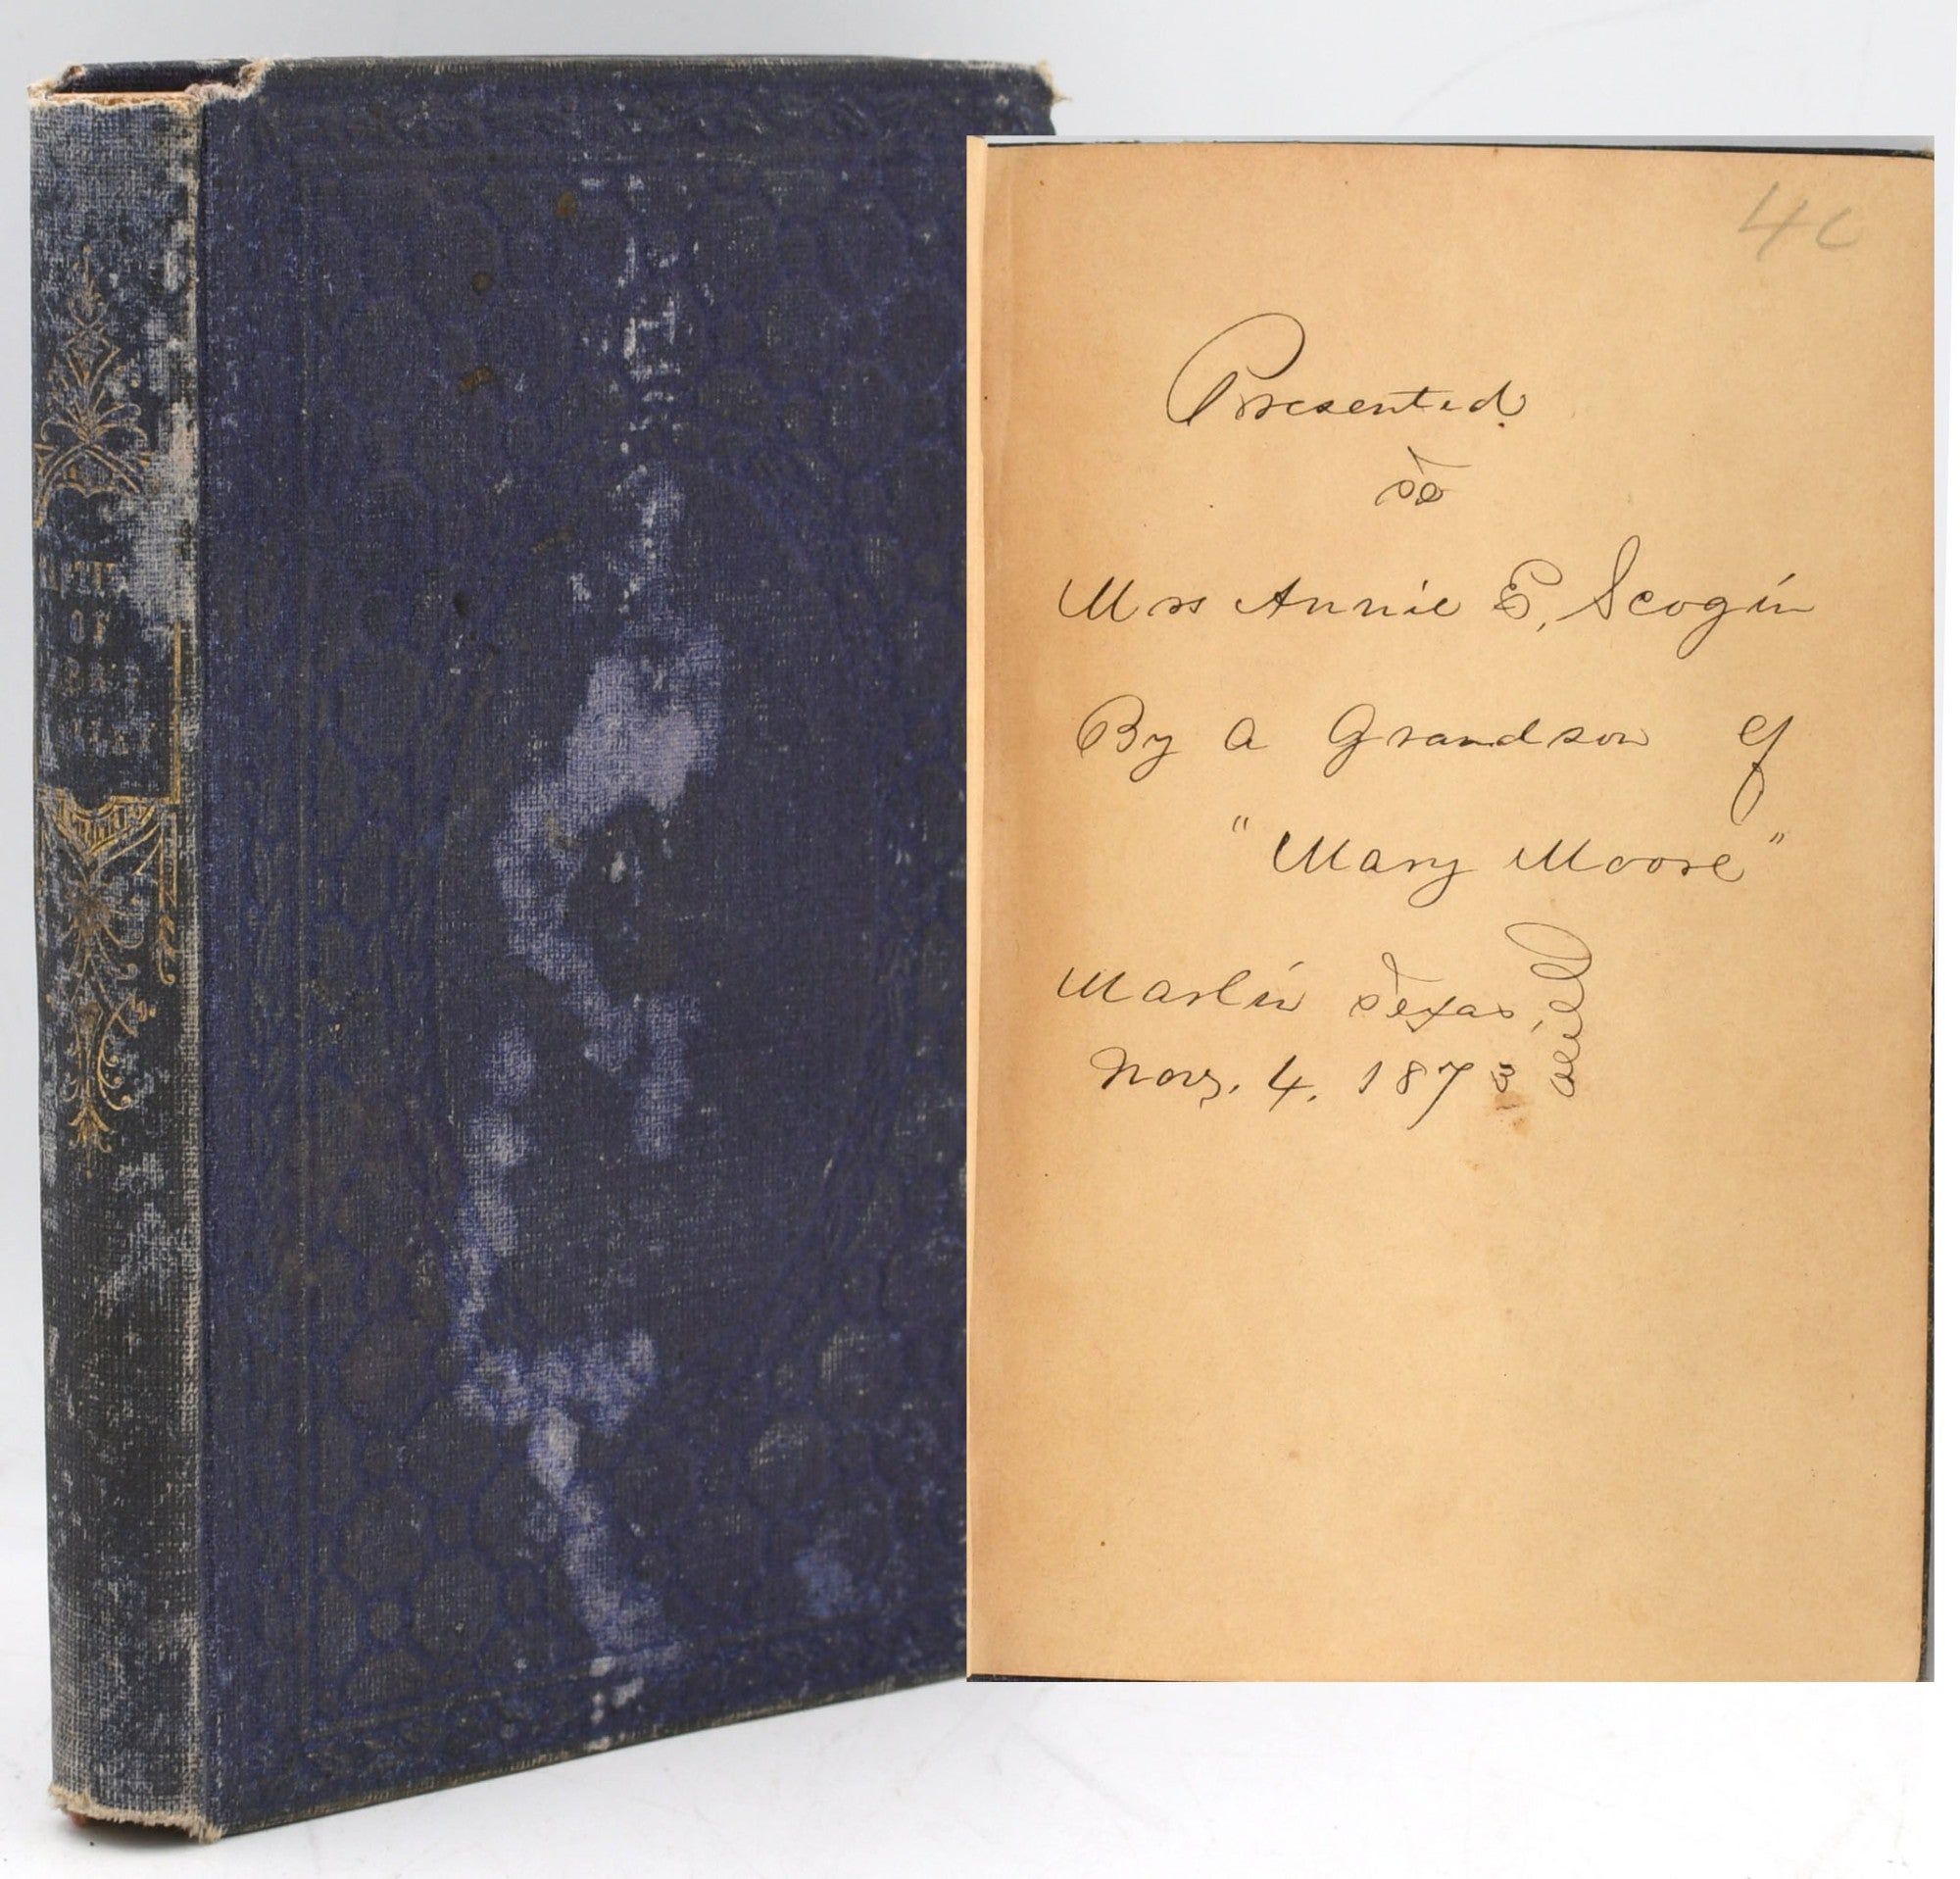 OF
4c
Presented
to
Mrs Annie E, Scogin
By a Grandson of
"Mary Moore"
Marlin Texas,
Nov. 4. 1873